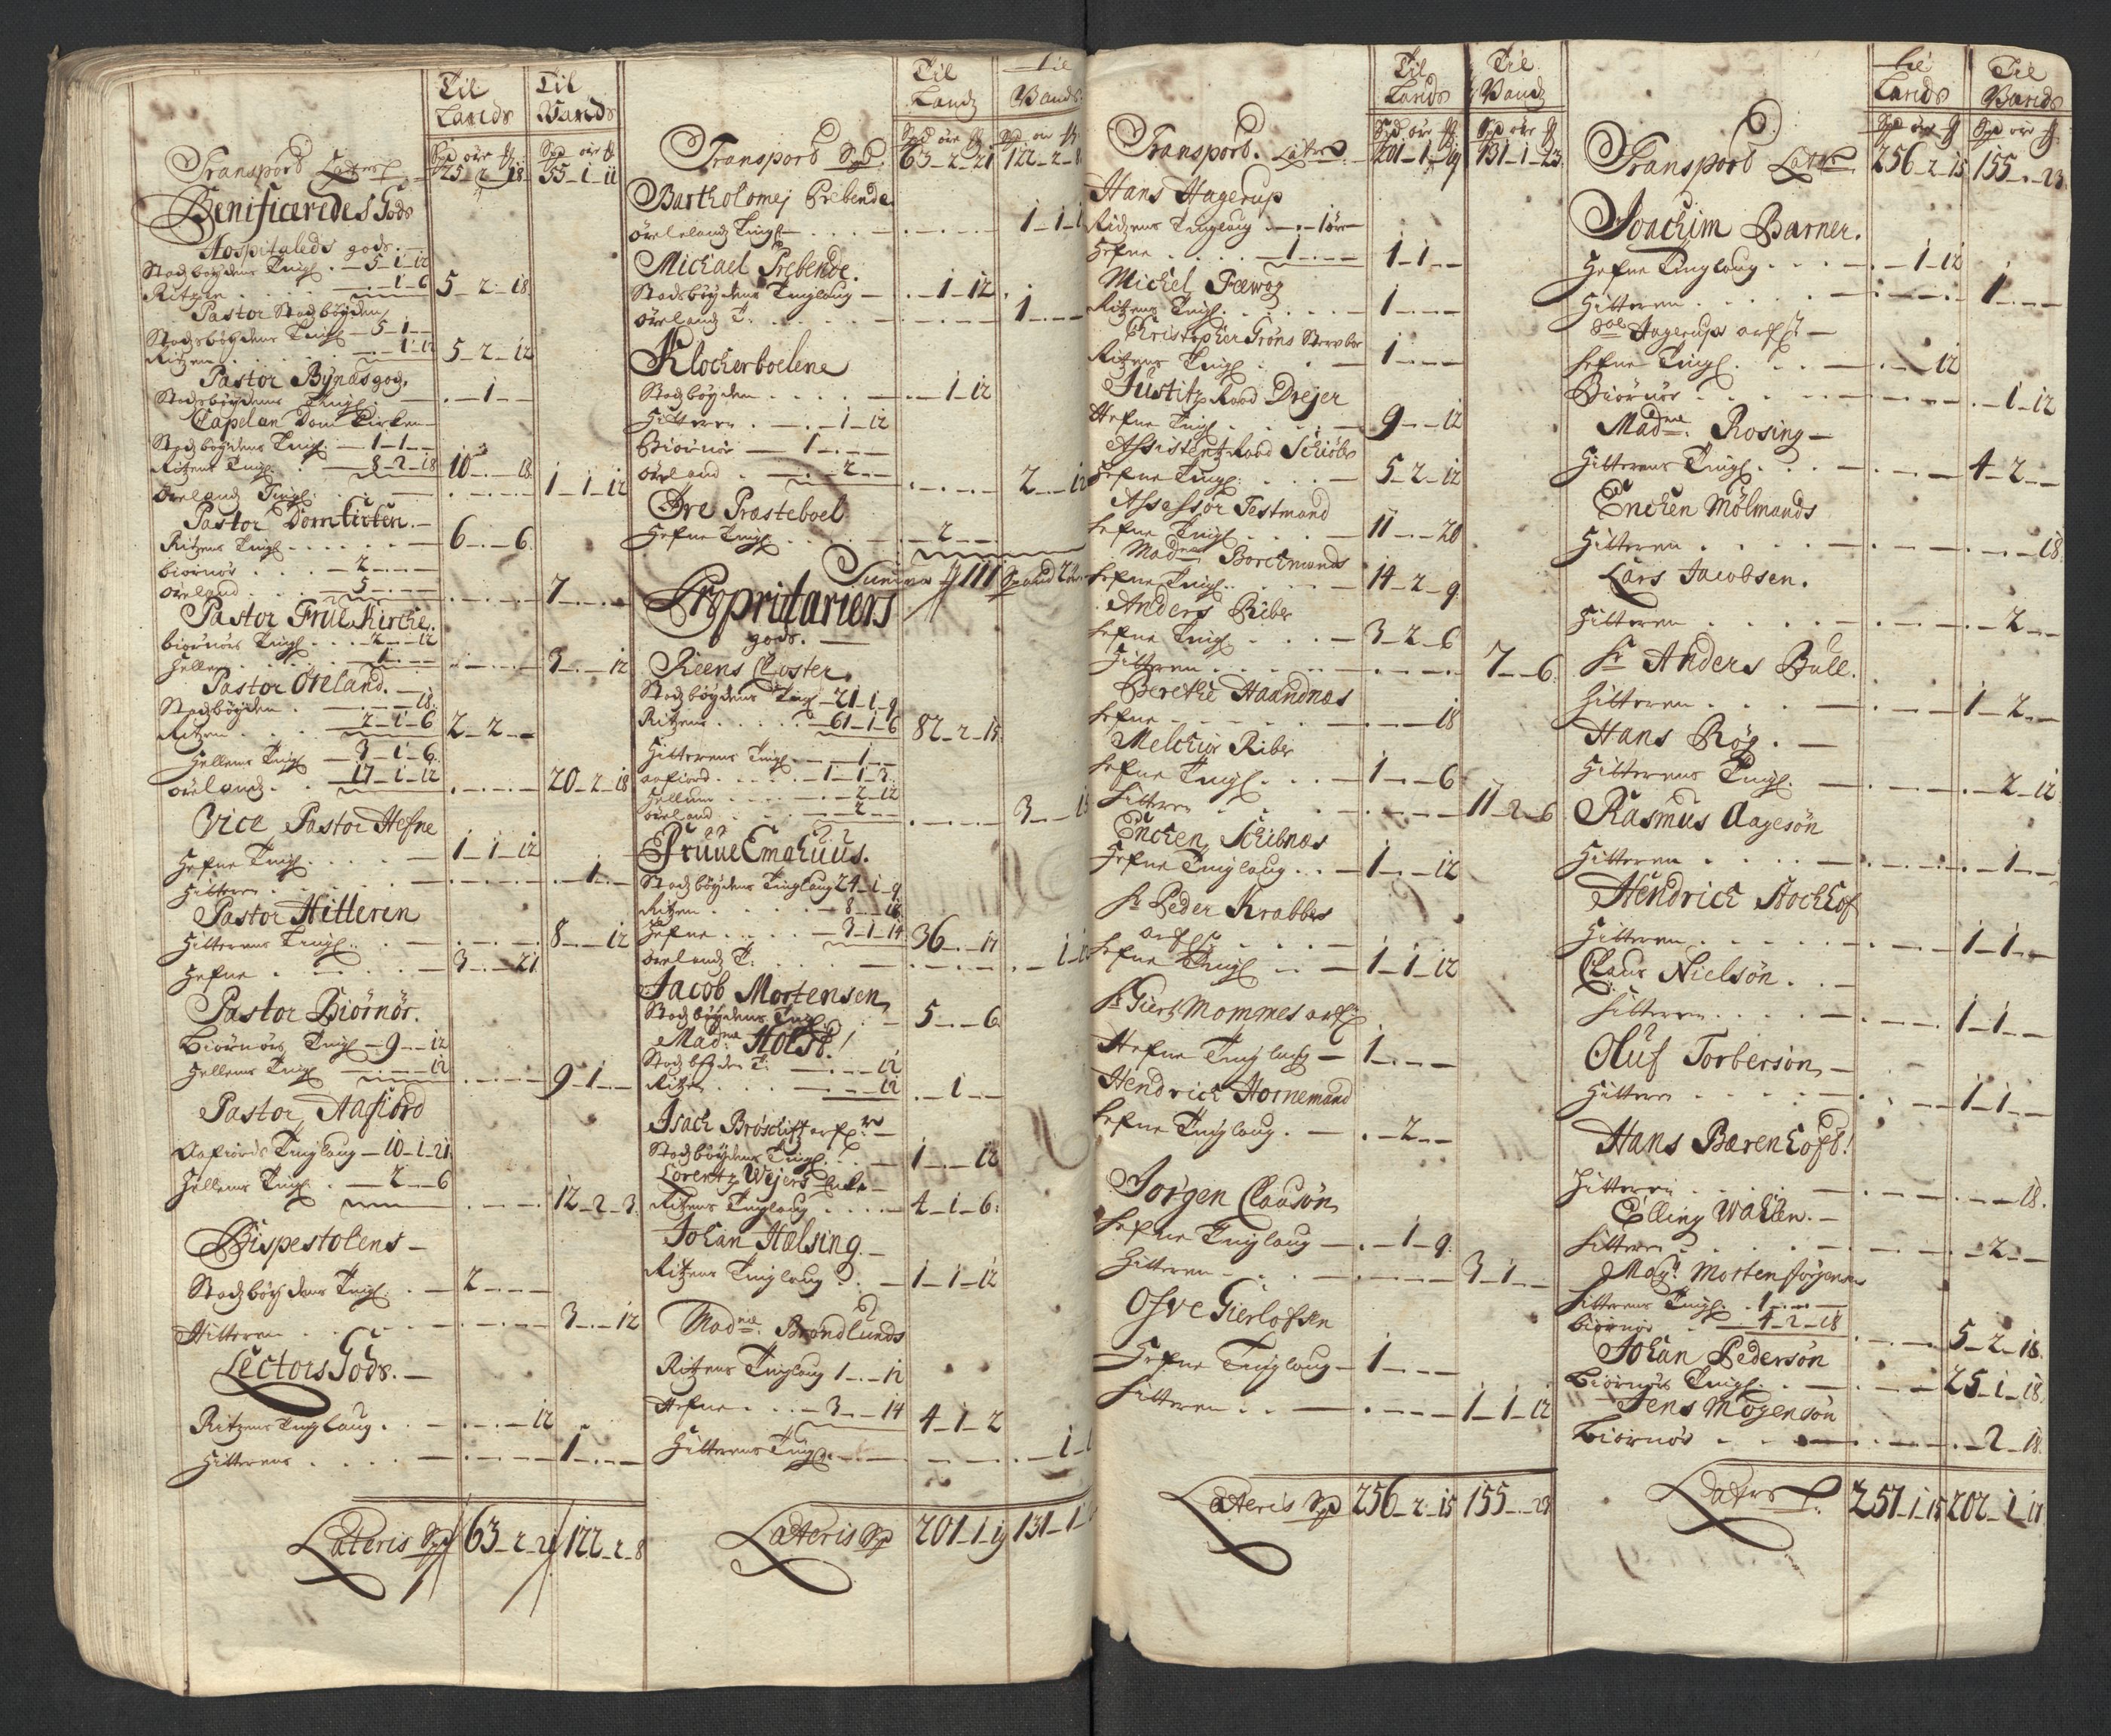 Til Lands Til Vands
Spd øre Spd øre
Transport Lateris 25-2-18 55-1-11
Benificerede Gods
Hospitaleds gods.
Stadsbøydens Tingl. 5-1-12
Ritzen 1-6 5-2-18
Pastor Stadsbøyden
Stadsbøydens Tingl 5-1--
Ritzen 1-12 5-2-12
Pastor Bynæs god,
Stadsbøydens Tingl. -1--
Capelan Dom Kirken
Stadsbøydens Tingl. 1-1--
Ritzens Tingl. 8-2-18 10--18
Ørelands Tingl. 1-1-12
Pastor Domkirken.
Ritzens Tingl 6--6
biørnør 2---
ørland 5--- 7---
Pastor Frue Kirche.
biørnørs Tingl 2--12
Hellem 1--- 3--12
Pastor Øreland.
Stadsbøyden 18
Ritzen 2-1-6 2-2--
Hellems Tingl 3-1-6
øreland 17-1-12 20-2-18
Vice Pastor Hefne
Hefne Tingl. 1-1-12
Hitteren -1--
Pastor Hitteren
Hitterens Tingl. 8--12
Hefne 3--21
Pastor Biørnør.
Biørnørs Tingl 9--12
Hellems Tingl 12 9-1--
Pastor Aafiord
Aafiords Tinglaug 10-1-21
Hellems Tingl. 2--6
12-2-3
Bispestolens
Stadsbøydens Tingl. 2---
Hitteren 3--12
Lectors Gods.
Ritzens Tinglaug. 12
Hitterens 1---
Lateris Spd 63-2-21 122-2-8

Til Landz Til Vands
Spd øre Spd øre
Transport Spd. 63-2-21 122-2-8
Bartholomej Prebende
ørelands Tingl 1-1-
Michael Prebende.
Stadsbøydens Tinglaug -1-12
øreland T. 1---
Klockerboelene
Stadsbøyden -1-12
Hitteren -1-12
Biørnør 1---
øreland -2-- 2--12
Øre Præsteboel
Hefne Tingl -2--
Summa 111 Spand 2 øre
Propritariers
gods.
Reens Closter.
Stadsbøydens Tingl 21-1-9
Ritzens 61-1-6 82-2-15
Hitterens Tingl -1--
aafiord 1-1-3
Hellem -2-12
øreland -2-- 3--15
Früüe Emahuus.
Stadsbøydens Tinglaug 24-1-9
Ritzen 8--18
Hefne 3-1-14 36--17
ørelands T. 1-
Jacob Mortensen
Stadsbøydens Tingl. 5--6
Madme Holst.
Stadsbøyden T. 12
Ritzen 12 -1--
Isach Bröschift arf
Stadsbøydens Tingl. 1--12
Lorentz Wejers Enke
Ritzens Tinglaug 4-1-6
Johan Halsing.
Ritzens Tinglaug 1-1-12
Madme. Brøndlunds
Ritzens Tinglaug 1--12
Hefne 3--14 4-1-2
Hitterens Tingl. 1-
Lateris Spd 201-1-19 131-1-

Til Lands Til Vandz
Spd øre Spd øre
Transport. Lateris 201-1-19 131-1-23
Hans Hagerup
Ritzens Tinglaug -1 øre
Hefne -1-- 1-1--
Michel Fæwog
Ritzens Tingl. 1---
Christopher Gröns Sterrboe
Ritzens Tingl 1---
Justitz Raad Drejer
Hefne Tingl 9--12
Assistentz Raad Schiøler
Hefne Tingl. 5-2-12
Assessor Testmand
Hefne Tingl 11--20
Madme Borchmands
Hefne Tingl. 14-2-9
Anders Riber
Hefne Tingl 3-2-6
Hitteren 7--6
Berethe Haandnæs
Hefne 18
Melchior Riber
Hefne Tingl. 1--6
Hitteren 11-2-6
Enchen Schibnæs
Hefne Tinglaug 1--12
Sr Peder Krabbes
arf
Hefne Tingl 1-1-12
Sr Giert Mommes arf
Hefne Tinglaug 1---
Hendrich Hornemand
Hefne Tinglaug. -2--
Jørgen Clausøn
Hefne Tinglaug -1-9
Hitteren 3-1--
Ofve Gierlofsen
Hefne Tinglaug 1---
Hitteren 1-1-12
Lateris Spd 256-2-15 155--23

Til Lands Til Vands
Spd øre Spd øre
Transport Lateris 256-2-15 155--23
Joachim Barner.
Hefne Tinglaug -1-12
Hitteren 1---
Sal Hagerups arf
Hefne Tingl. 12
Biørnør -1-12
Madme. Rosing
Hitterens Tingl. 4-2--
Enchen Mölmands
Hitteren 18
Lars Jacobsen.
Hitteren -2--
Sr Anders Bull.
Hitteren 1-2--
Hans Røg.
Hitterens Tingl. -2-12
Rasmus Aagesøn
Hitteren -1--
Hendrich Stochhof
Hitteren 1-1--
Claus Nielsøn.
Hitteren 1-1--
Oluf Torbersøn
Hitteren 1-1--
Hans Bærenhoft!
Hitteren 18.
Elling Wahlen.
Hitteren -2--
Mag. Morten Jørgensen
Hitterens Tingl. 1---
biørnør 4-2-18 5-2-18
Johan Pedersøn
Biørnørs Tingl. 25-1-18
Jens Mogensøn
biørnør -2-18
Lateris 257-1-15 202-1-11